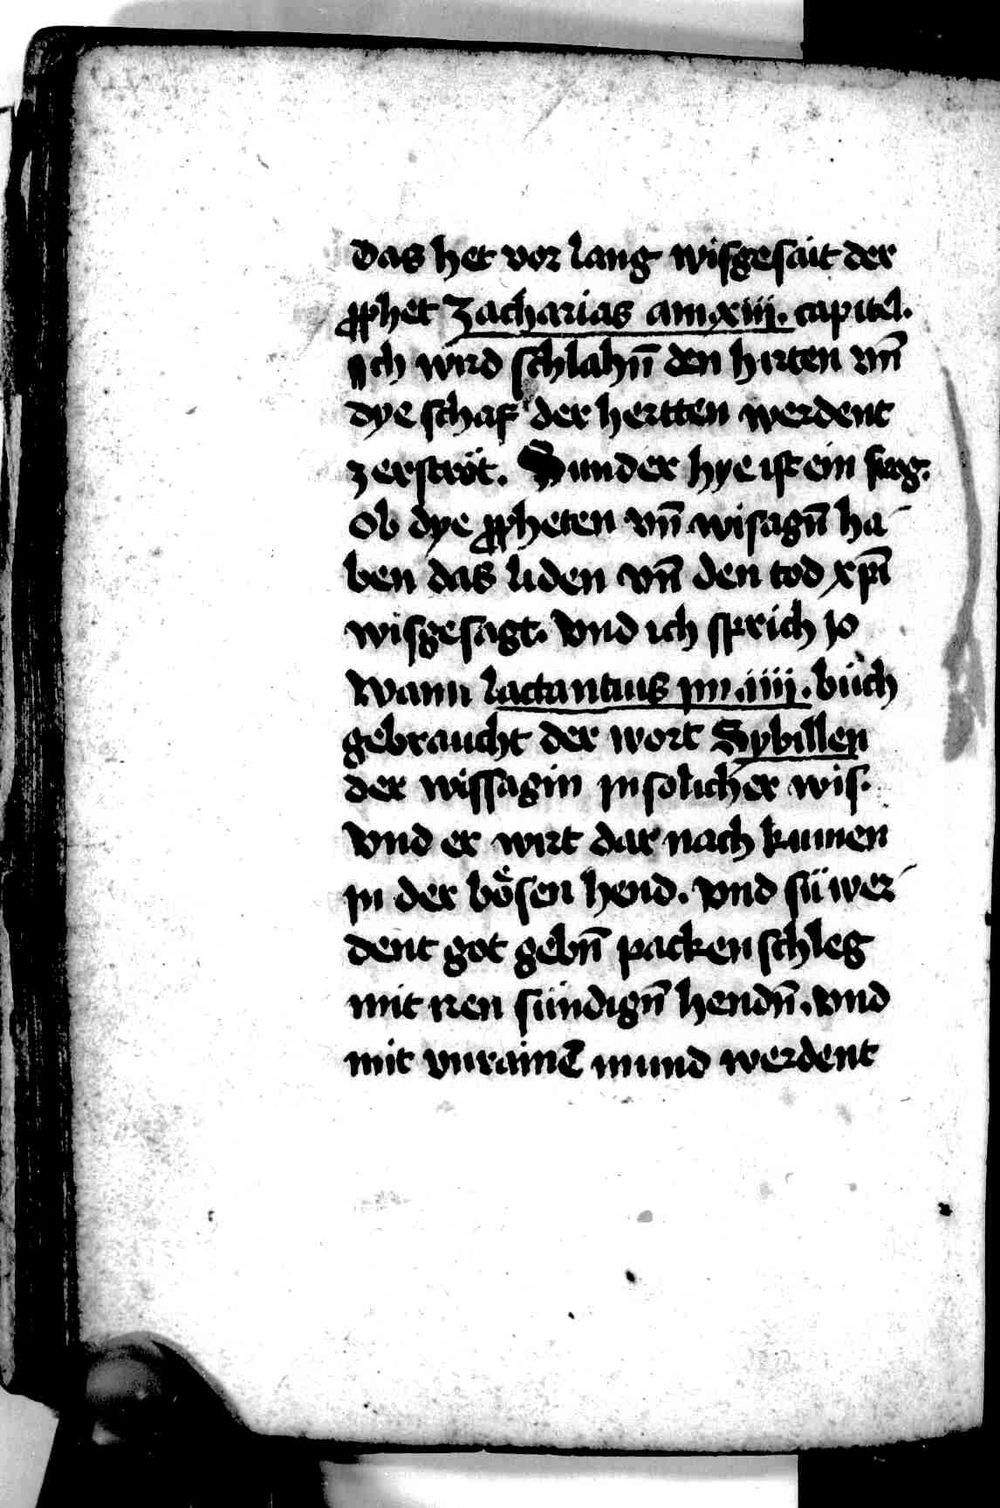 Das het vor lang wisgesait der
ꝓphet Zacharias am xiij. capitel.
Ich wird schlahn̄ den hirten vn̄
dye schaf der hertten werdent
zerströt. Sunder hye ist ein frog.
ob dye ꝓpheten vn̄ wisagn̄ ha-
ben das liden vn̄ den tod xp̄i
wisgesagt. Vnd ich sprich Jo
Wann lactantius jm .iiij. büch
gebraucht der wort Sybillen
der wissagin jn solicher wis.
Vnd er wirt dar nach kumen
jn der bösen hend. Vnd sü wer-
dent got gebn̄ packen schleg
mit iren sündign̄ hendn̄. Vnd
mit vnrainē mund werdent